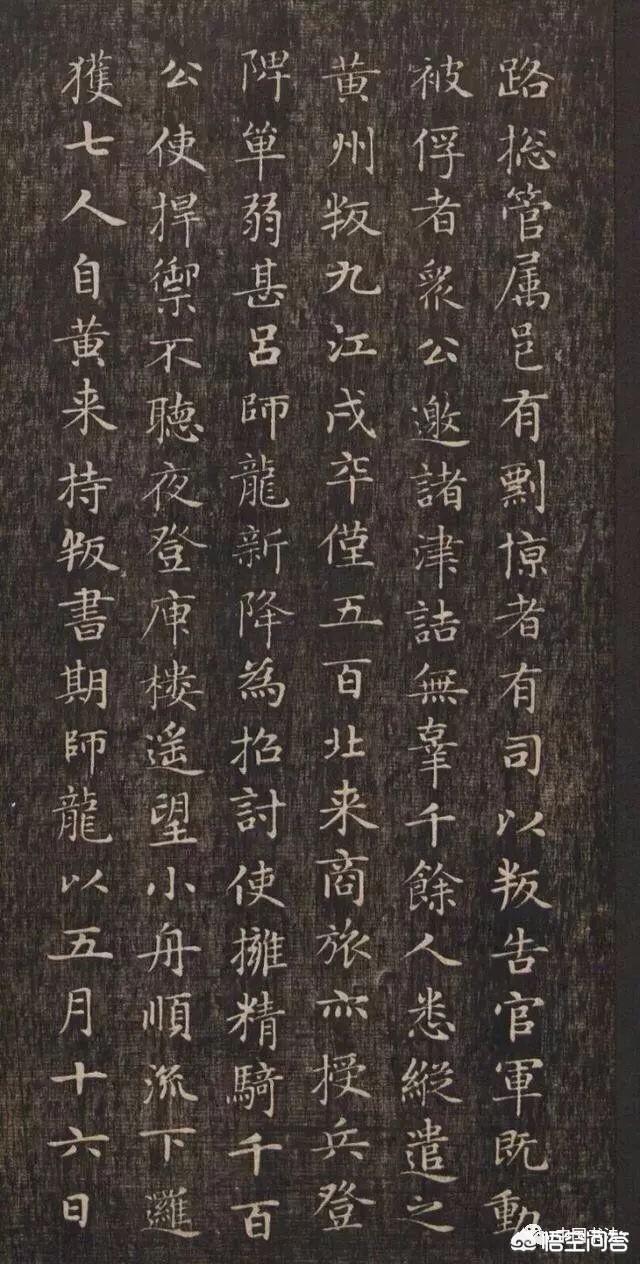 路揔管属邑有剽掠者有司以叛告官軍既動
被俘者衆公邀諸津詰無辜千餘人悉縱遣之
黄州叛九江戍卒僅五百北来商旅亦授兵登
陴單弱甚吕師龍新降為招討使擁精騎千百
公使捍禦不聽夜登庾樓遥望小舟順流下邏
獲七人自黄来持叛書期師龍以五月十六日
中国书法
悟空问答